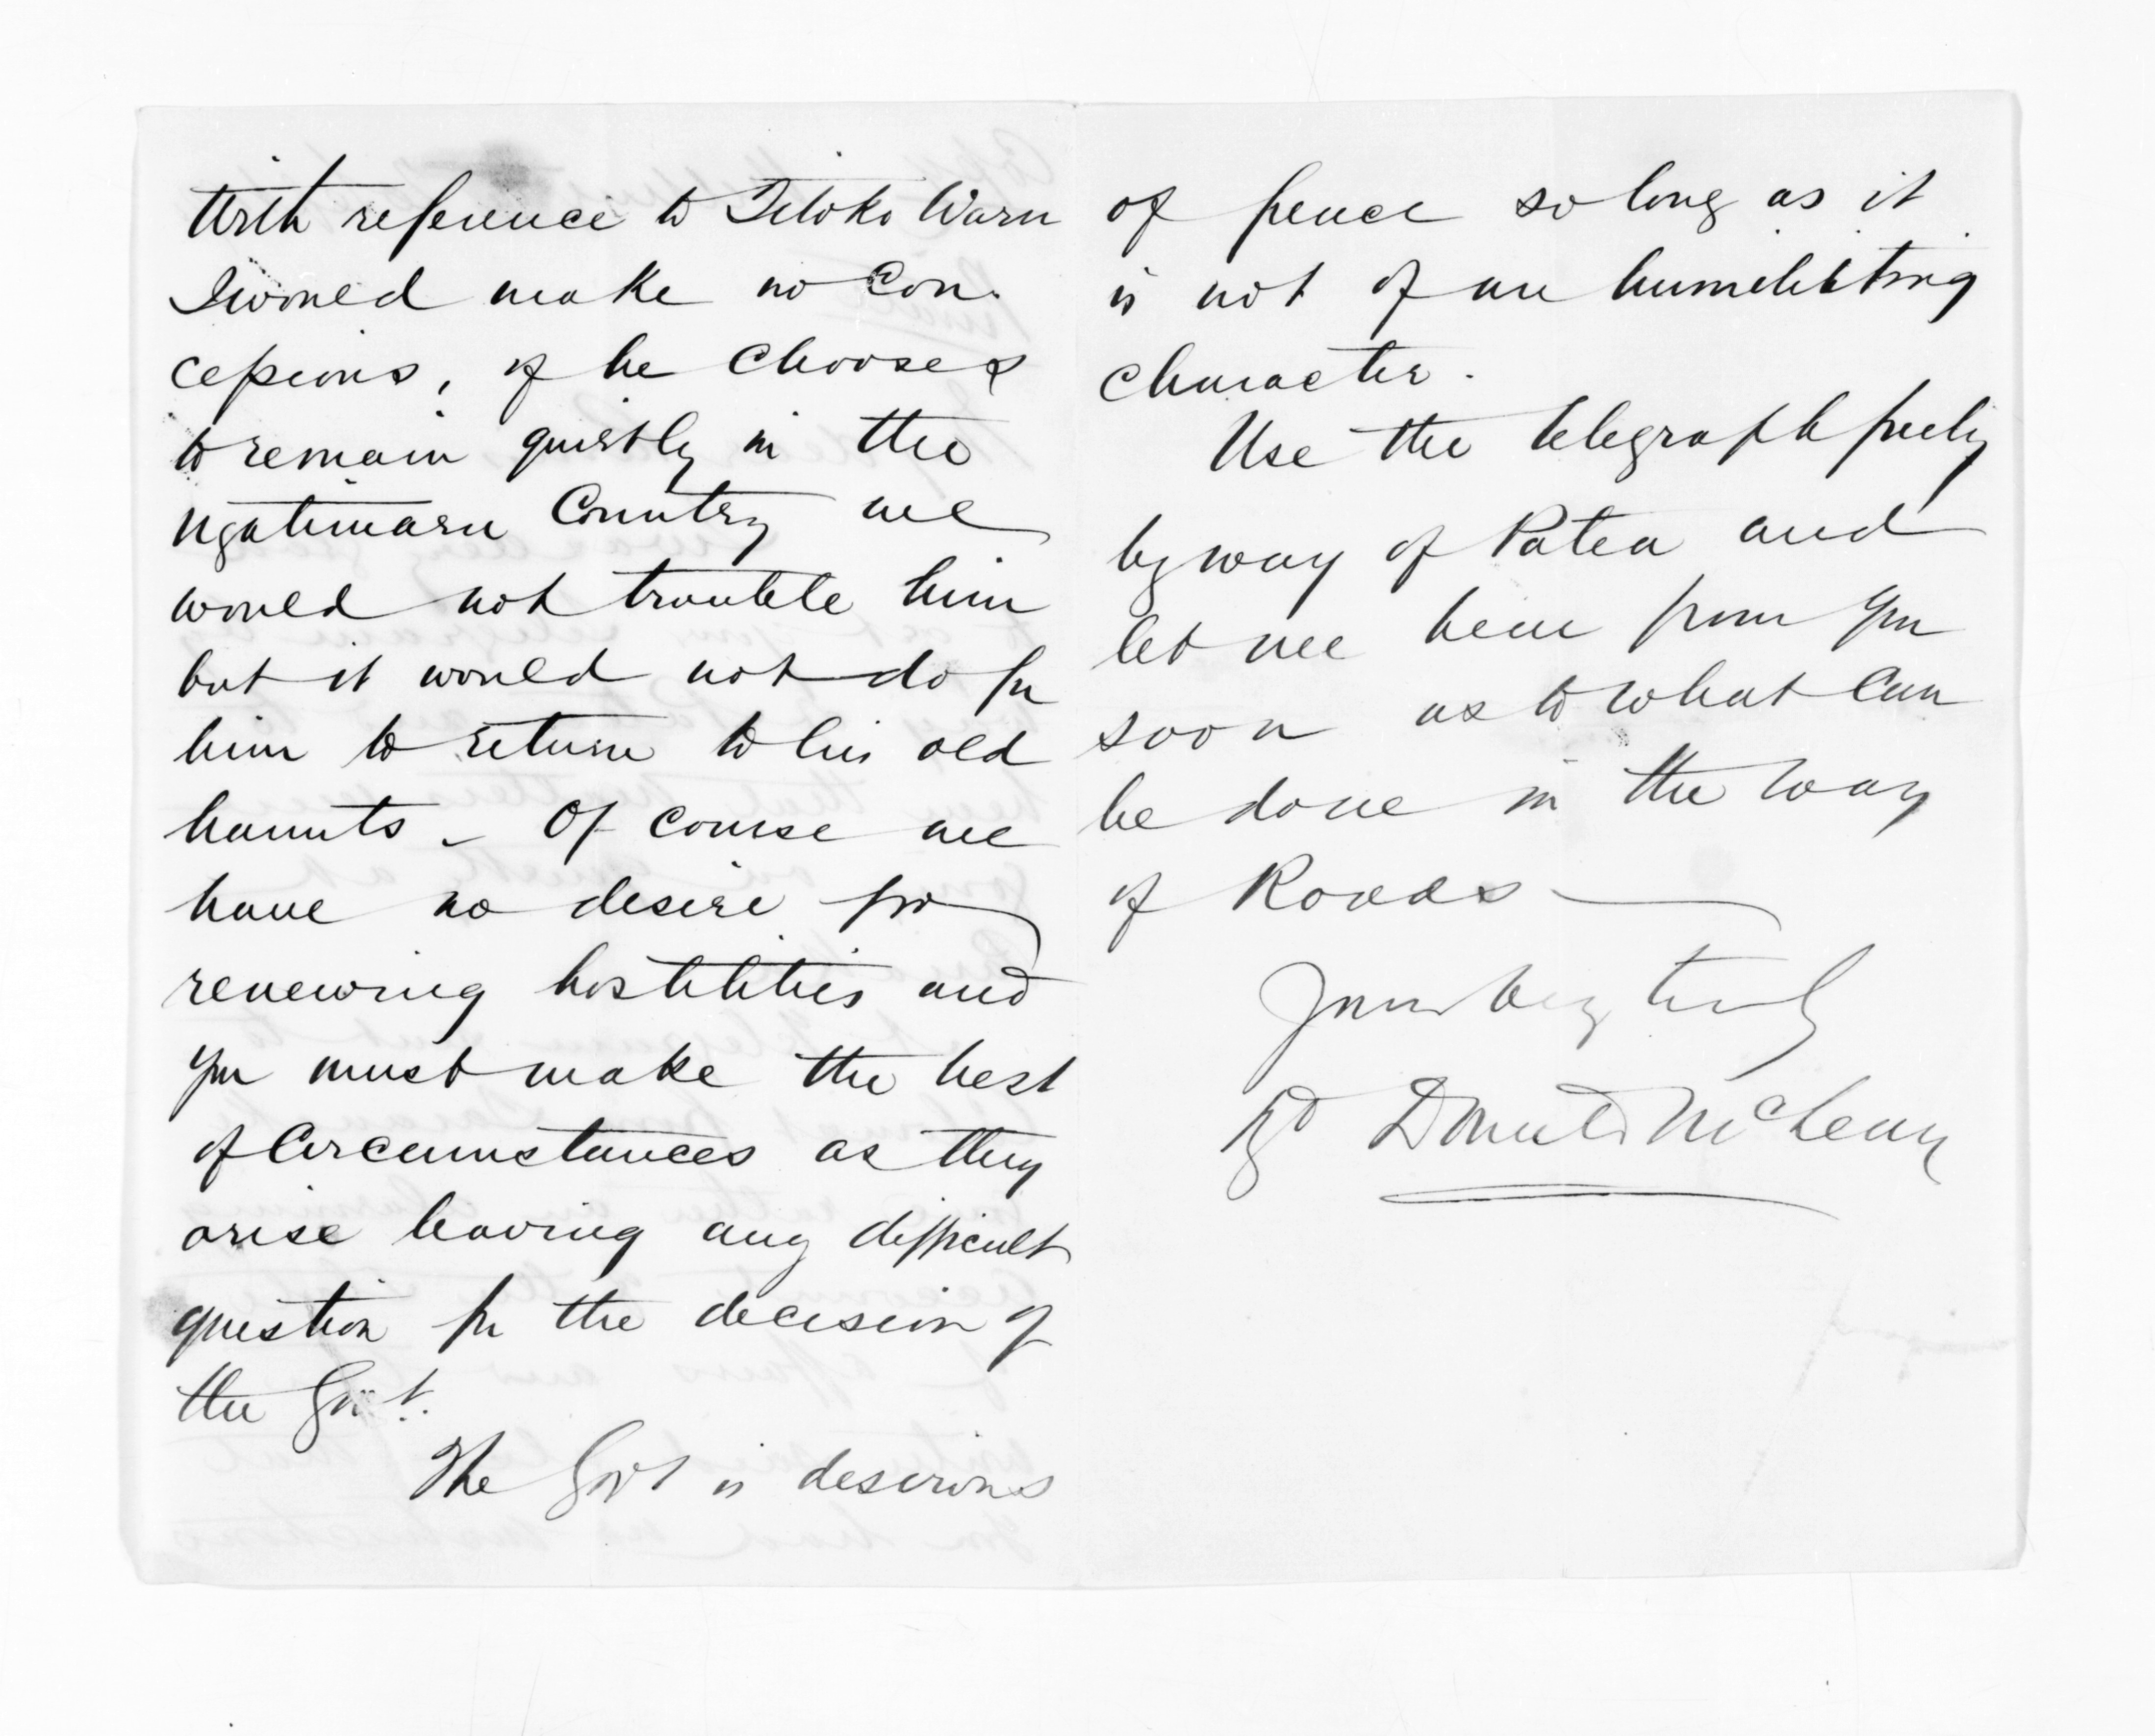 With reference to Titoko Waru
I would make no Con-
cessions, if he chooses
to remain quietly in the
Ngatimaru Country we
would not trouble him
but it would not do for
him to return to his old
haunts - Of course we
have no desire for
renewing hostilities and
you must make the best
of Circumstances as they
arise leaving any difficult
question for the decision of
the Govt.
The Govt is desirous
of peace so long as it
is not of an humiliating
character.
Use the telegraph freely
by way of Patea and
let me hear from you
soon as to what Can
be done in the way
of Roads
Yours very truly
Donald McLean